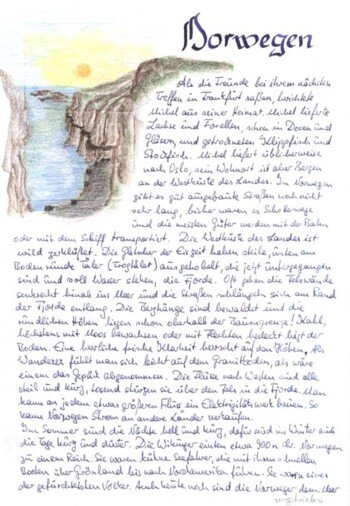 Norwegen
Als die Freunde bei ihrem nächsten
Treffen in Frankfurt saßen, berichtete
Michel aus seiner Heimat. Michel lieferte
Lachse und Forellen, schon in Dosen und
Gläsern, und getrockneten Klippfisch und
Stockfisch. Michel liefert üblicherweise
nach Oslo, sein Wohnort ist aber Bergen
an der Westküste des Landes. In Norwegen
gibt es gut ausgebaute Straßen noch nicht
sehr lang, bisher waren es Schotterwege
und die meisten Güter werden mit der Bahn
oder mit dem Schiff transportiert. Die Westküste des Landes ist
wild zerklüftet. Die Gletscher der Eiszeit haben steile, unten am
Boden runde Täler (Trogtäler) ausgehobelt, die jetzt untergegangen
sind und voll Wasser stehen, die Fjorde. Oft gehen die Felswände
senkrecht hinab ins Meer und die Straßen schlängeln sich am Rand
der Fjorde entlang. Die Berghänge sind bewaldet und die
rundlichen Höhen liegen schon oberhalb der Baumgrenze! Kahl,
höchstens mit Moos bewachsen oder mit Flechten bedeckt liegt der
Boden. Eine herrliche, frische Klarheit herrscht auf den Höhen. Als
Wanderer fühlt man sich leicht auf dem Granitboden, als wäre
einem das Gepäck abgenommen. Die Flüsse nach Westen sind alle
steil und kurz, tosend stürzen sie über den Fels in die Fjorde. Man
kann an jedem etwas größeren Fluss ein Elektrizitätswerk bauen. So
kann Norwegen Strom an andere Länder verkaufen.
Im Sommer sind die Nächte hell und kurz, dafür sind im Winter auch
die Tage kurz und düster. Die Wikinger einten etwa 900 n. Chr. Norwegen
zu einem Reich. Sie waren kühne Seefahrer, die mit ihren schnellen
Booten über Grönland bis nach Nordamerika fuhren. Sie waren eines
der gefürchtetsten Völker. Auch heute noch sind die Norweger dem Meer
verschrieben